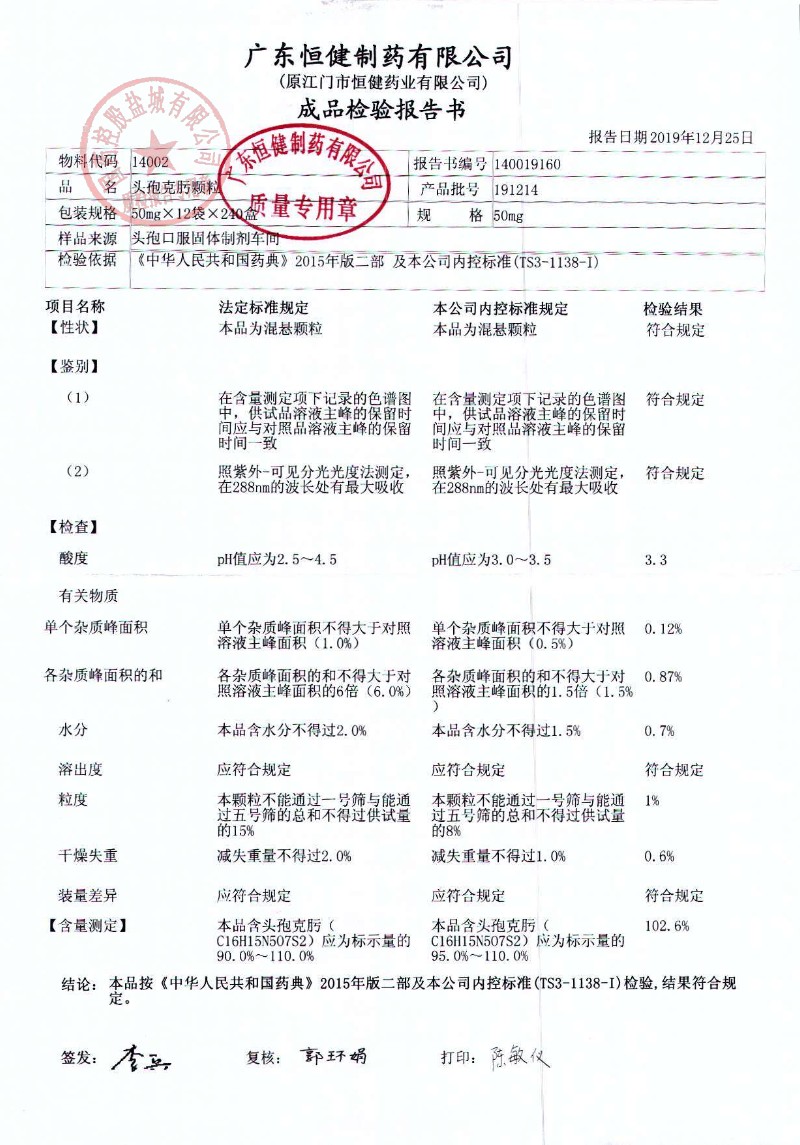 广东恒健制药有限公司
(原江门市恒健药业有限公司)
成品检验报告书
报告日期2019年12月25日
物料代码 14002 报告书编号 140019160
品 名 头孢克肟颗粒 产品批号 191214
包装规格 50mg×12袋×240盒 规 格 50mg
样品来源 头孢口服固体制剂车间
检验依据 《中华人民共和国药典》2015年版二部 及本公司内控标准(TS3-1138-I)
控股盐城有限公司
广东恒健制药有限公司
质量专用章
项目名称 法定标准规定 本公司内控标准规定 检验结果
【性状】 本品为混悬颗粒 本品为混悬颗粒 符合规定
【鉴别】
(1) 在含量测定项下记录的色谱图 在含量测定项下记录的色谱图 符合规定
中，供试品溶液主峰的保留时 中，供试品溶液主峰的保留时
间应与对照品溶液主峰的保留 间应与对照品溶液主峰的保留
时间一致 时间一致
(2) 照紫外-可见分光光度法测定， 照紫外-可见分光光度法测定， 符合规定
在288nm的波长处有最大吸收 在288nm的波长处有最大吸收
【检查】
酸度 pH值应为2.5～4.5 pH值应为3.0～3.5 3.3
有关物质
单个杂质峰面积 单个杂质峰面积不得大于对照 单个杂质峰面积不得大于对照 0.12%
溶液主峰面积（1.0%） 溶液主峰面积（0.5%）
各杂质峰面积的和 各杂质峰面积的和不得大于对 各杂质峰面积的和不得大于对 0.87%
照溶液主峰面积的6倍（6.0%） 照溶液主峰面积的1.5倍（1.5%
）
水分 本品含水分不得过2.0% 本品含水分不得过1.5% 0.7%
溶出度 应符合规定 应符合规定 符合规定
粒度 本颗粒不能通过一号筛与能通 本颗粒不能通过一号筛与能通 1%
过五号筛的总和不得过供试量 过五号筛的总和不得过供试量
的15% 的8%
干燥失重 减失重量不得过2.0% 减失重量不得过1.0% 0.6%
装量差异 应符合规定 应符合规定 符合规定
【含量测定】 本品含头孢克肟（ 本品含头孢克肟（ 102.6%
C16H15N5O7S2）应为标示量的 C16H15N5O7S2）应为标示量的
90.0%～110.0% 95.0%～110.0%
结论： 本品按《中华人民共和国药典》2015年版二部及本公司内控标准(TS3-1138-I)检验,结果符合规
定。
签发： 复核： 郭环娟 打印： 陈敏仪